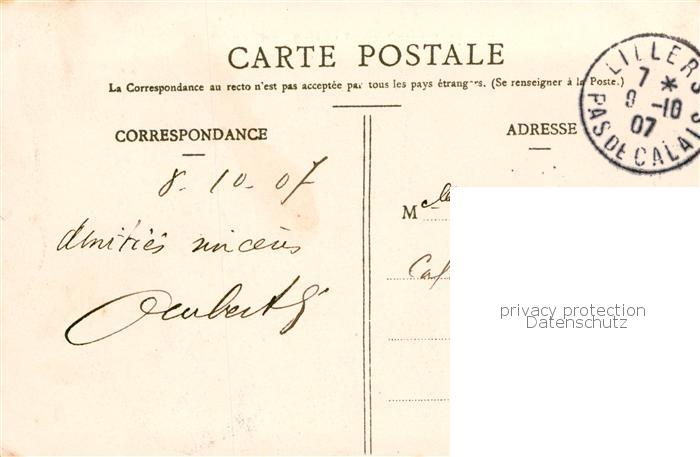 CARTE POSTALE
La Correspondance au recto n'est pas acceptée par tous les pays étrangers. (Se renseigner à la Poste.)
LILLERS
7 *
9 -10
07
PAS DE CALAIS
CORRESPONDANCE
ADRESSE
8-10-07
Amitiés sincères
M
privacy protection
Datenschutz